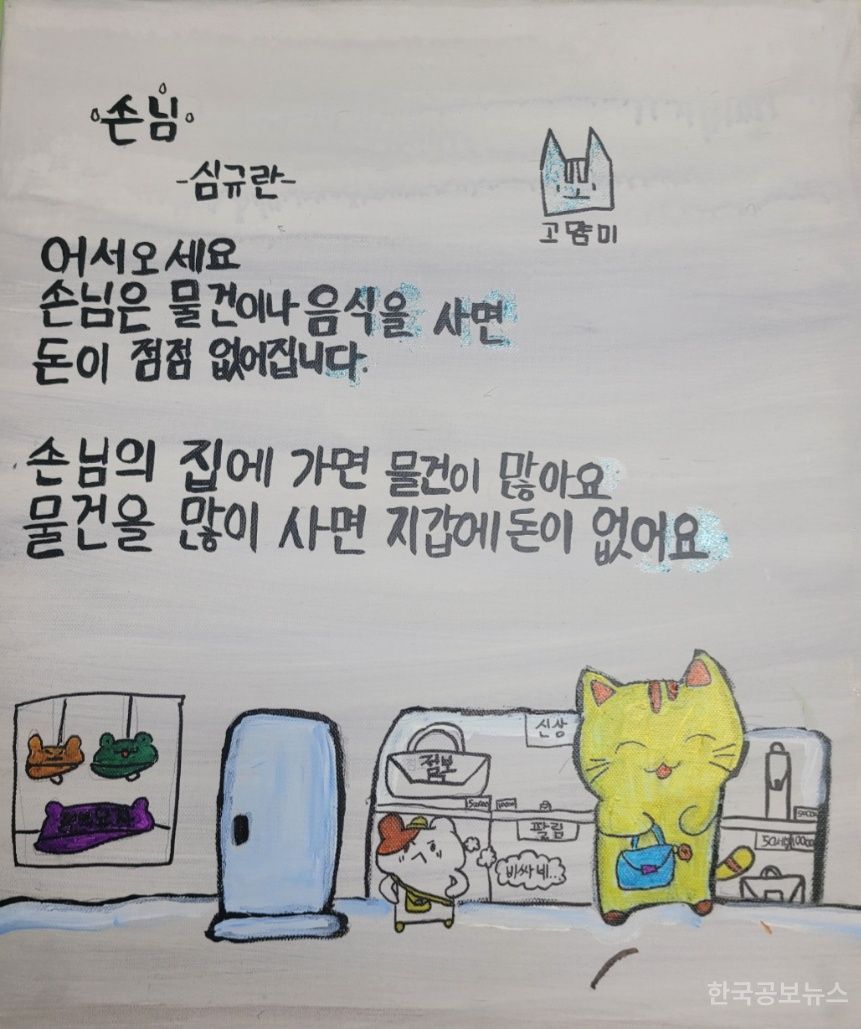 손님
-심규란-
고먐미
어서오세요
손님은 물건이나 음식을 사면
돈이 점점 없어집니다.
손님의 집에 가면 물건이 많아요
물건을 많이 사면 지갑에 돈이 없어요
신상
점보
팔림
비싸네..
한국공보뉴스